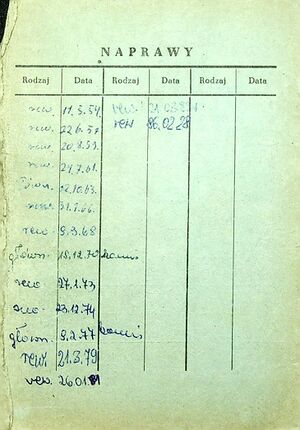 NAPRAWY
Rodzaj Data Rodzaj Data Rodzaj Data
rew. 11.3.54 rew.
rew. 22.6.57 rew 86.02.28
rew. 20.8.59.
rew. 24.7.61.
12.10.63.
rew. 31.1.66.
rew. 9.3.68
główn. 18.12.70
rew. 27.1.73
rew. 23.12.74
główn. 9.2.77
rew. 21.3.79
rew. 26.01.81